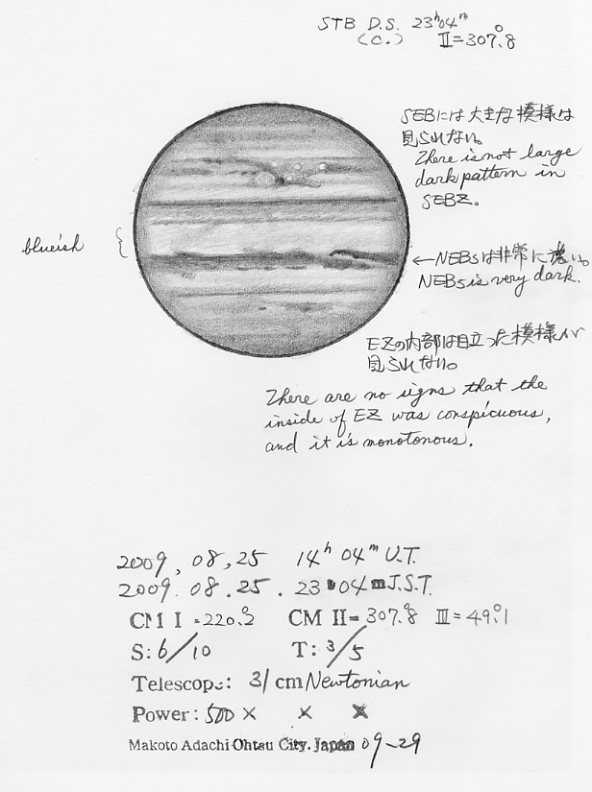 STB D.S. 23ʰ04ᵐ
(C.) II=307.°8
SEBには大きな模様は
見られない。
There is not large
dark pattern in
SEBZ.
blueish
←NEBsは非常に濃い。
NEBs is very dark.
EZの内部は目立った模様が
見られない。
There are no signs that the
inside of EZ was conspicuous,
and it is monotonous.
2009, 08, 25 14ʰ 04ᵐ U.T.
2009. 08. 25. 23 04 m J.S.T.
CM I = 220.°2 CM II = 307.°8 III = 49.°1
S: 6/10 T: 3/5
Telescope: 31 cm Newtonian
Power: 500 × × ×
Makoto Adachi Ohtsu City. Japan 09-29